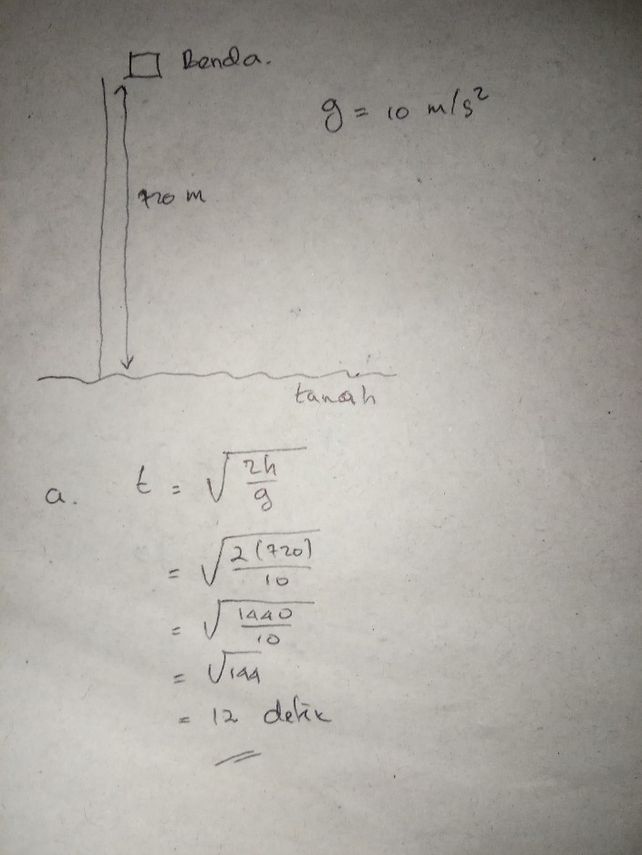 Benda.
g = 10 m/s²
720 m
tanah
a. t = √(2h/g)
= √(2(720)/10)
= √(1440/10)
= √144
= 12 detik